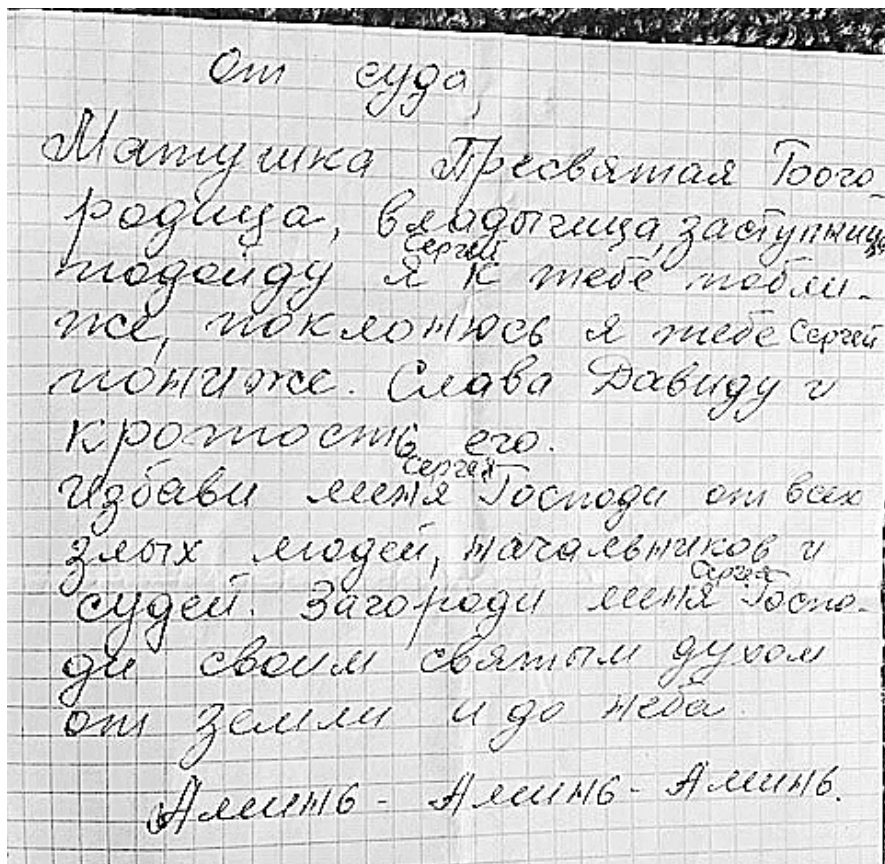 От суда,
Матушка Пресвятая Бого
родица, владычица, заступница
Сергей
подойду я к тебе побли-
же, поклонюсь я тебе Сергей
пониже. Слава Давиду и
кротость его.
Сергея
Избави меня Господи от всех
злых людей, начальников и
Сергея
судей. Загороди меня Госпо-
ди своим святым духом
от земли и до неба.
Аминь - Аминь - Аминь.